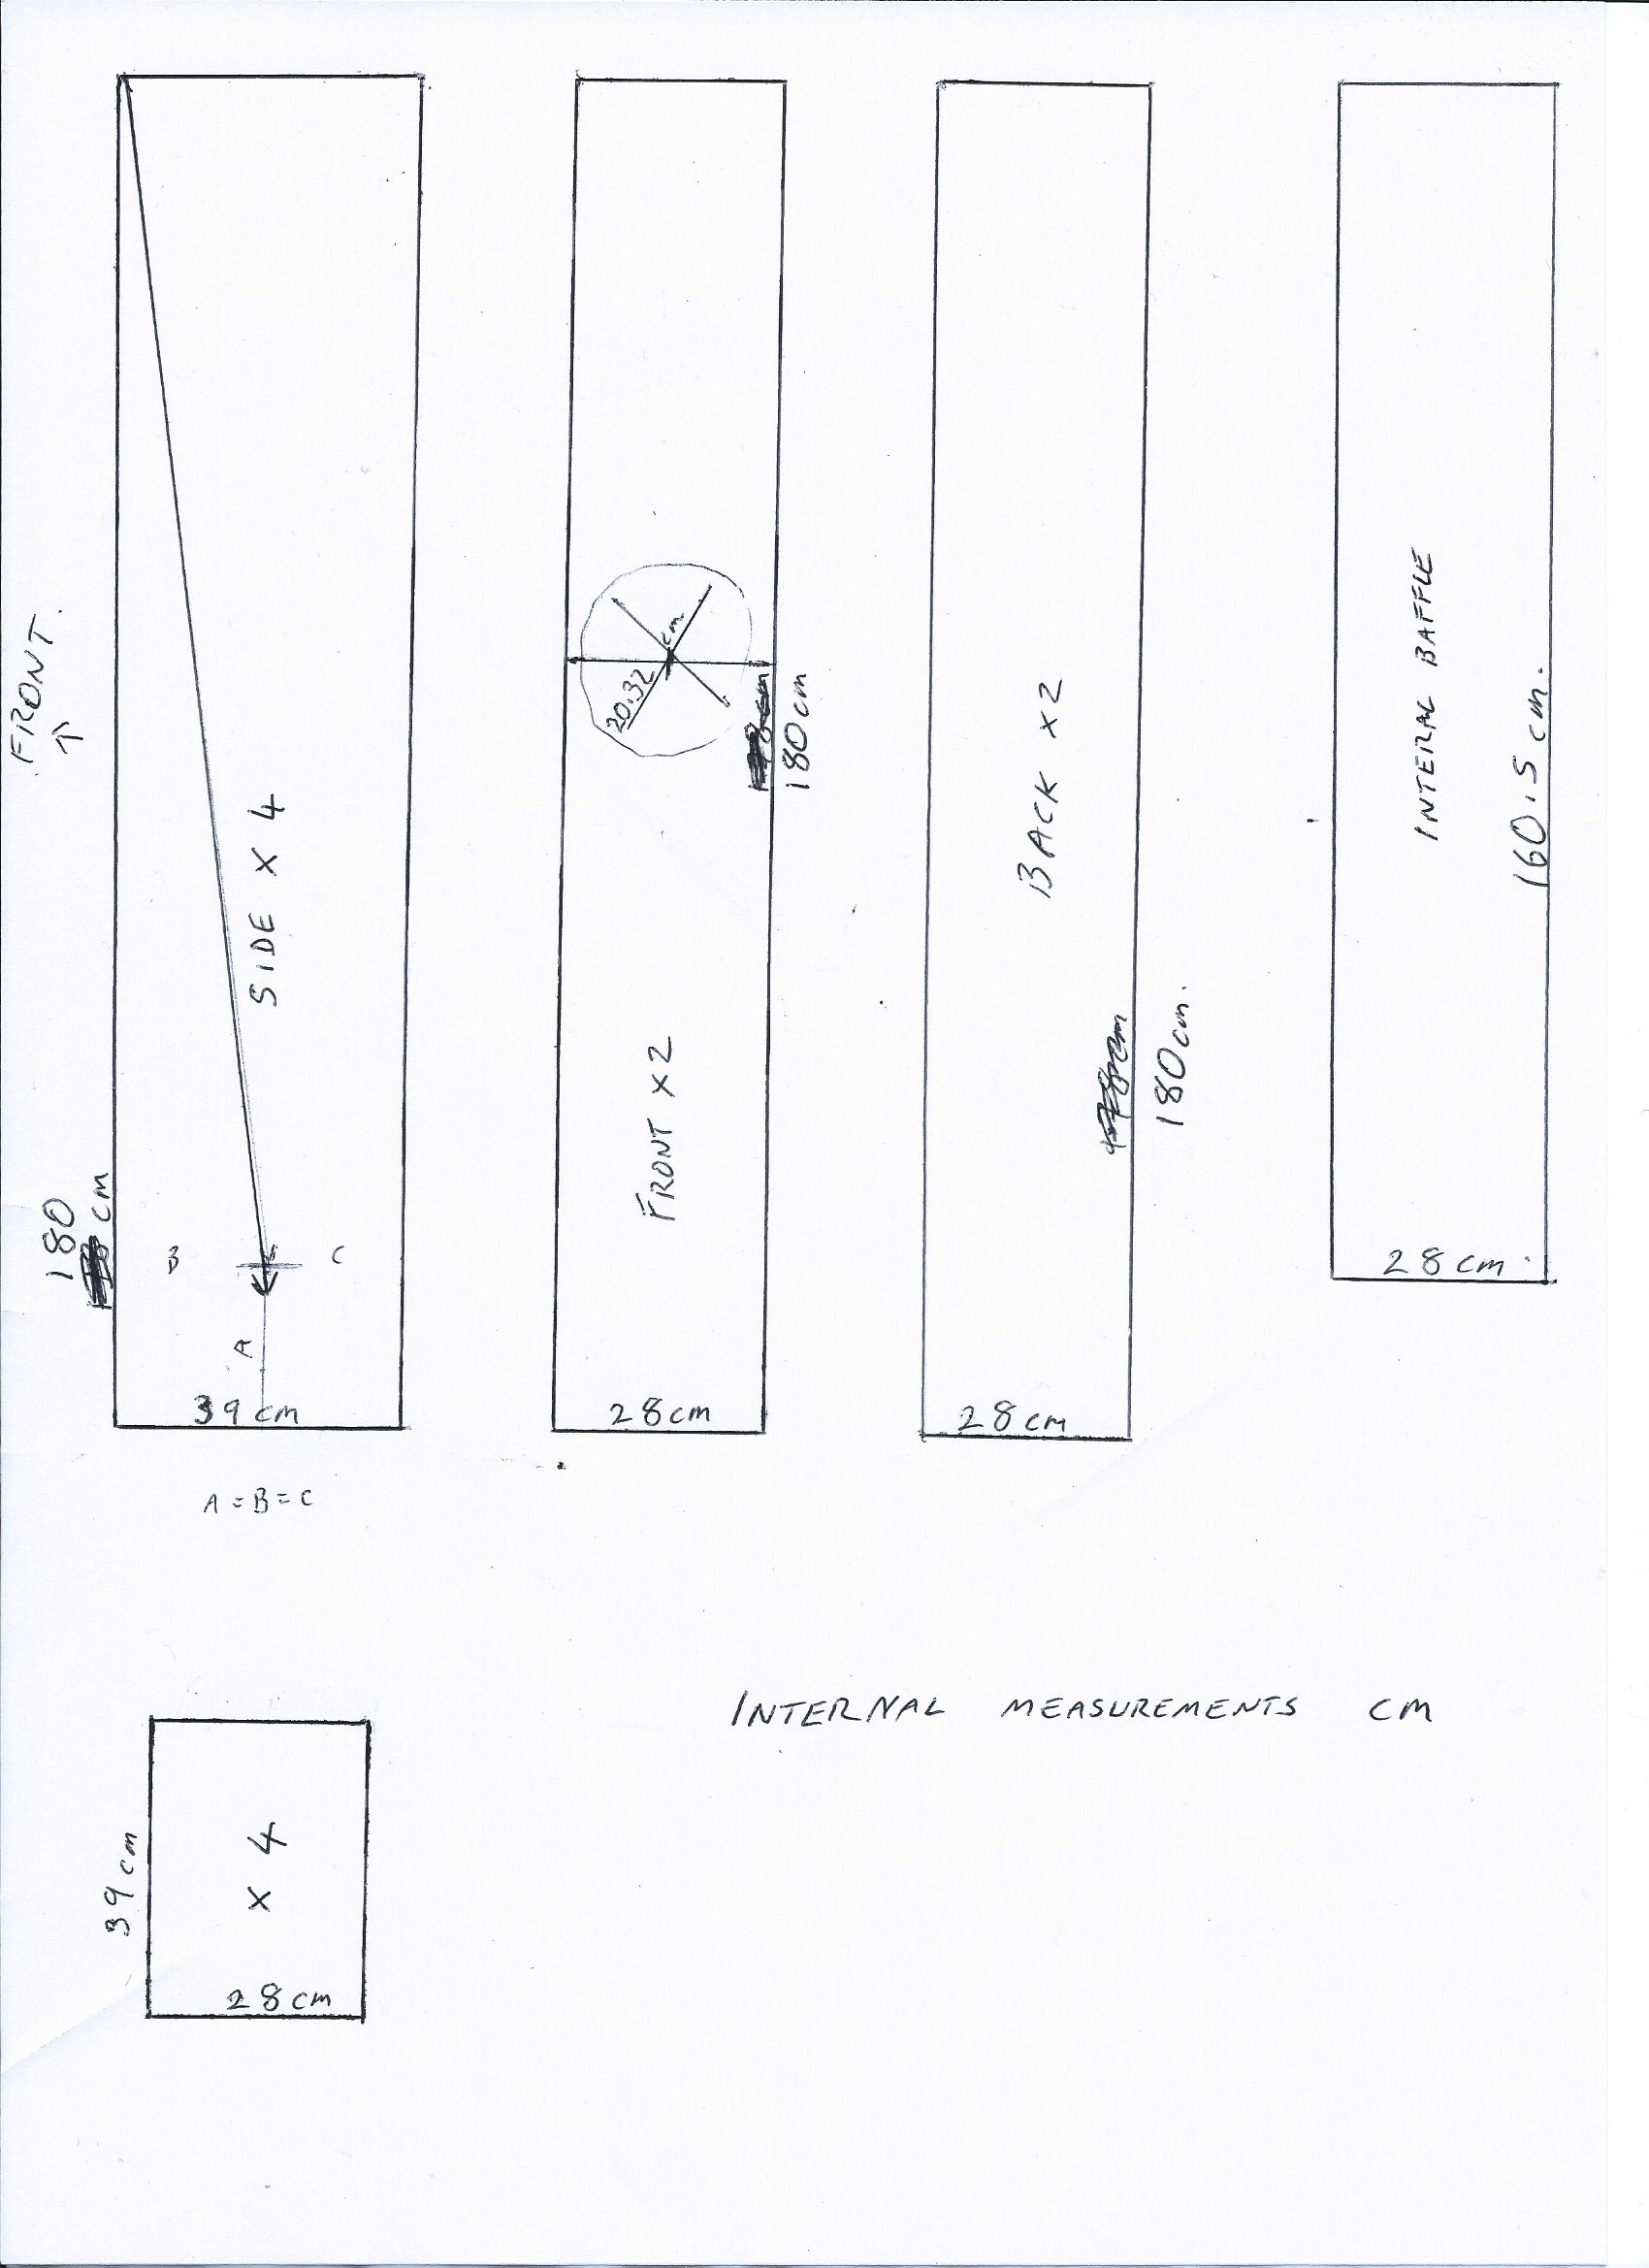 FRONT.
SIDE X 4
180
cm
B
C
A
39 cm
A = B = C
20.32 cm
180 cm
FRONT X 2
28 cm
BACK X 2
180 cm.
28 cm
INTERAL BAFFLE
160.5 cm.
28 cm
39 cm
X 4
28 cm
INTERNAL MEASUREMENTS CM